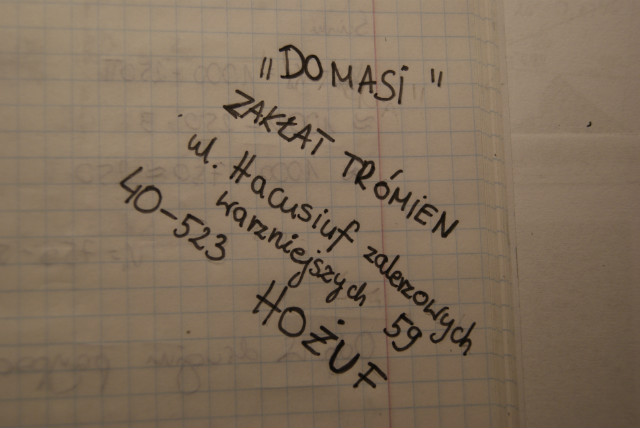 „DOMASi"
ZAKŁAT TRÓMIEN
ul. Hacusiuf zalerzowych
warzniejszych 59
40-523
HOŻUF